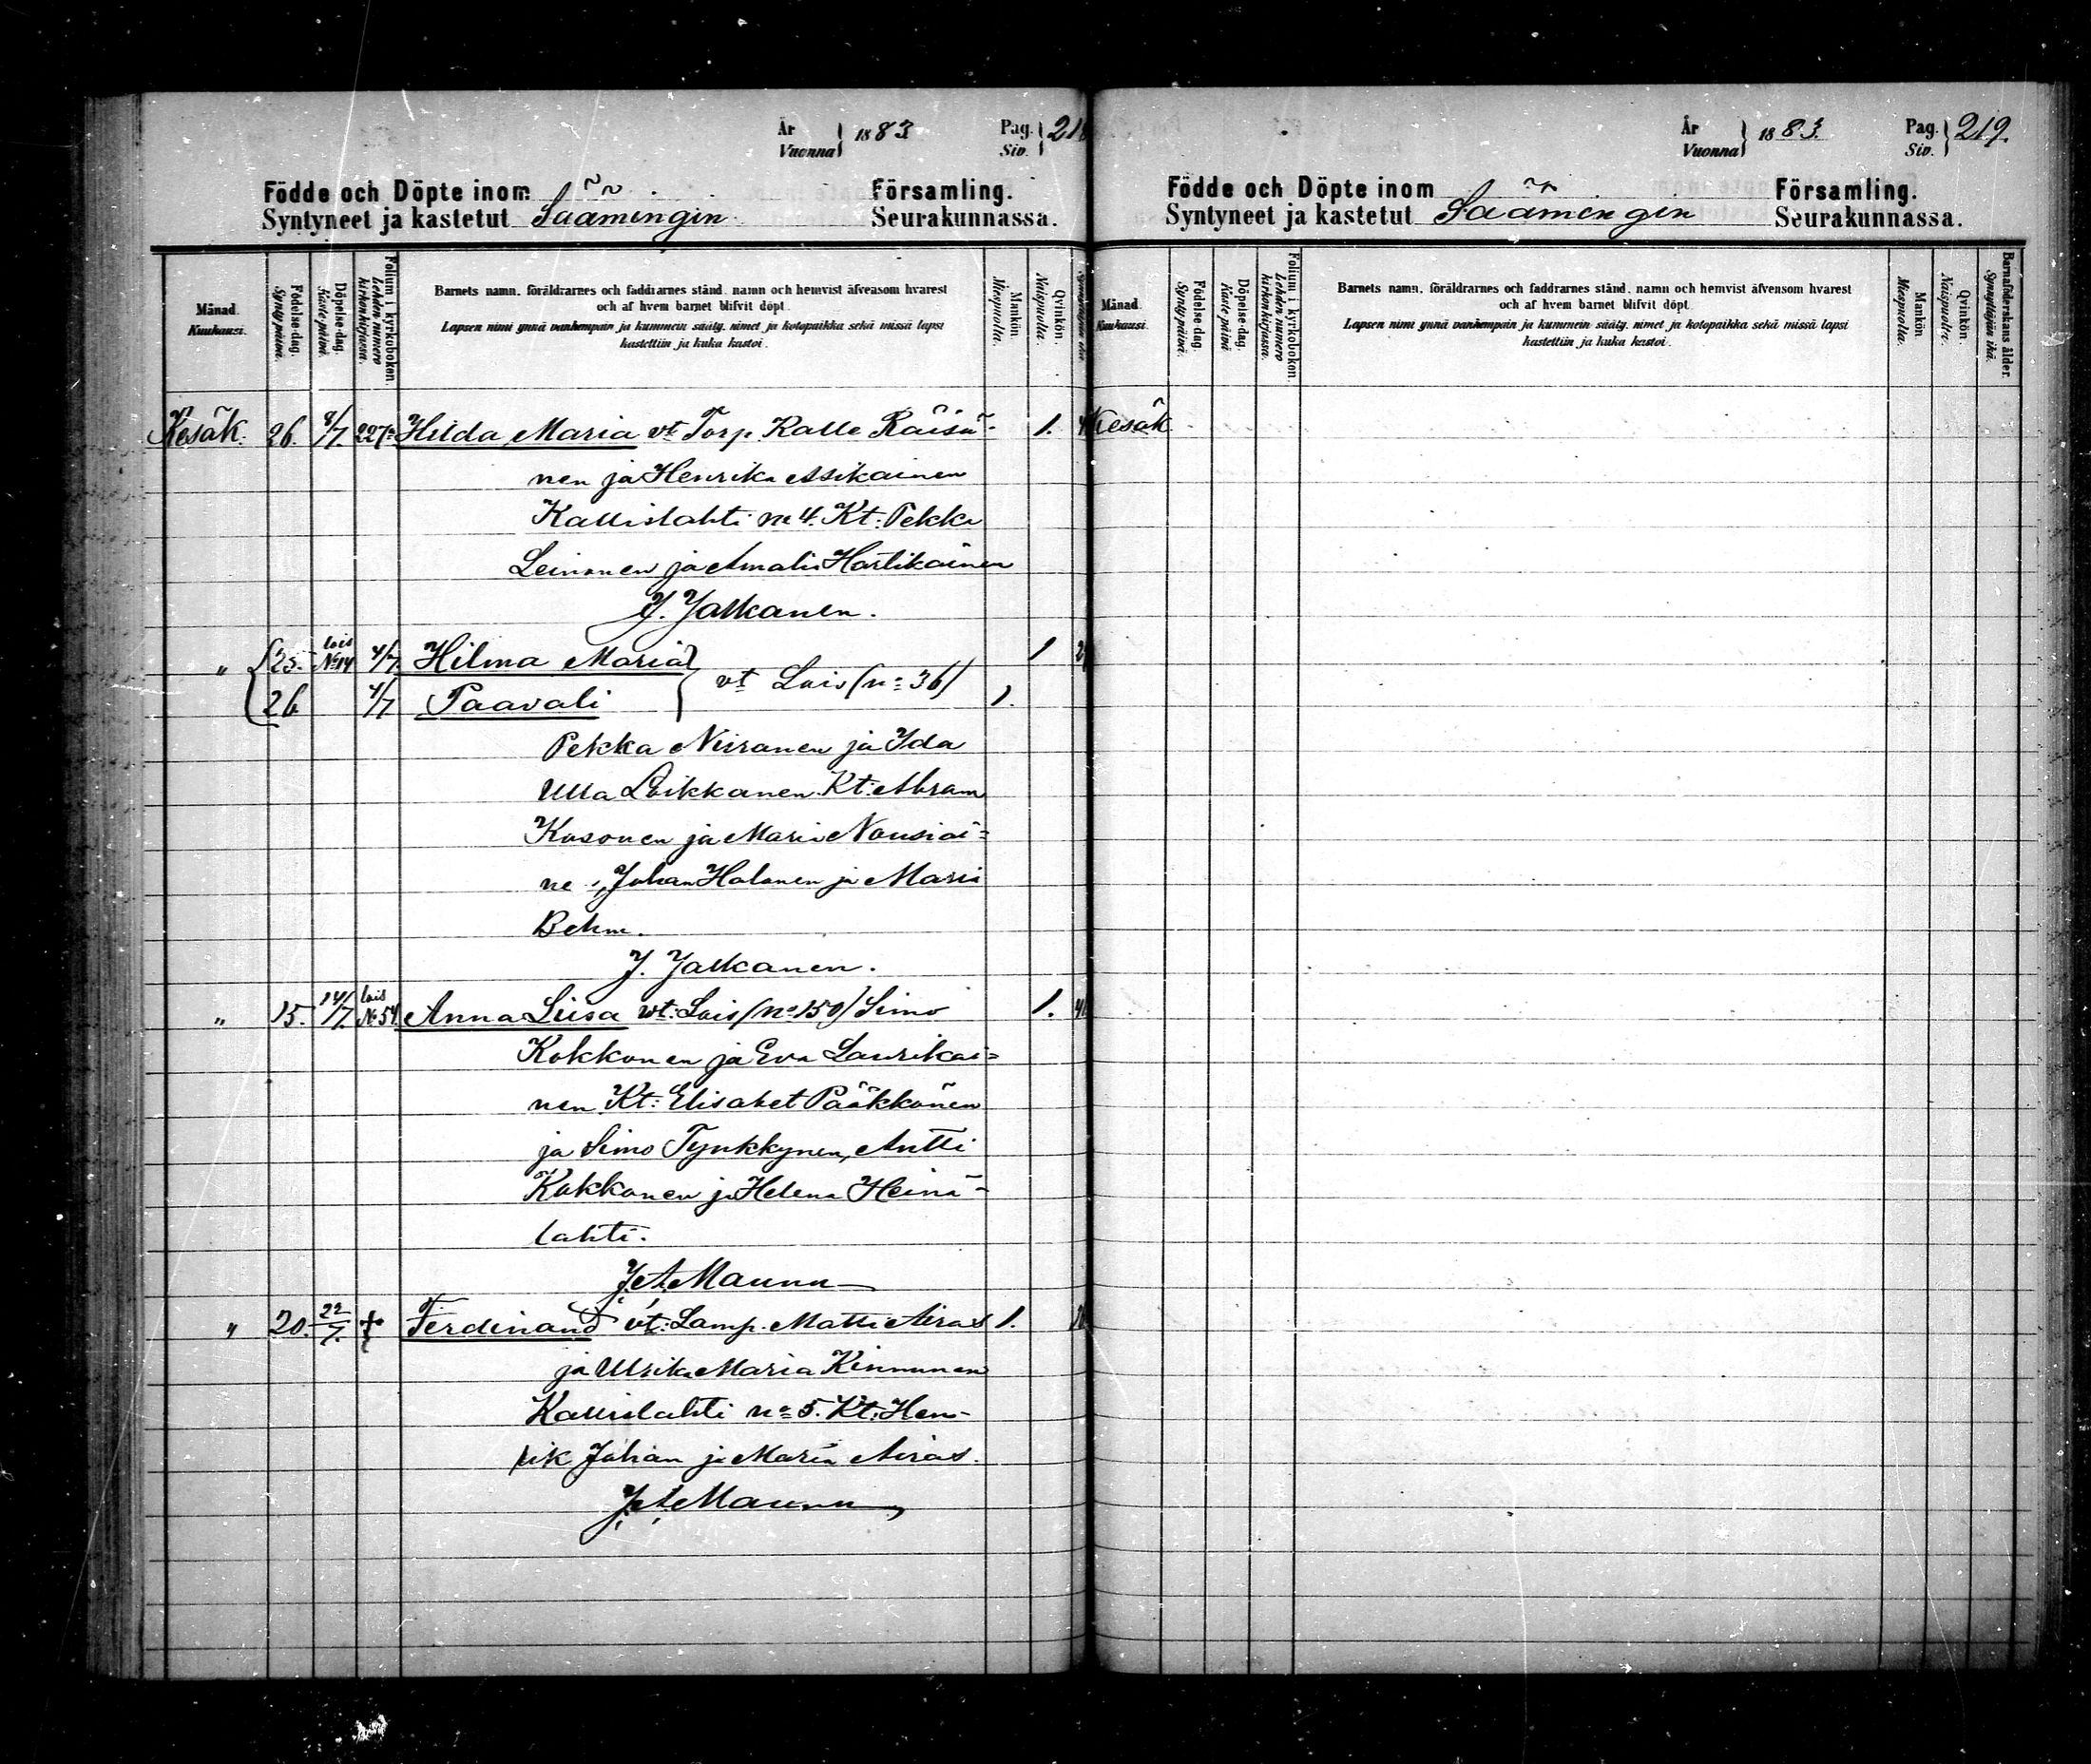 År
Vuonna } 1883
Pag.
Siv. } 218
Födde och Döpte inom
Syntyneet ja kastetut Säämingin
Församling.
Seurakunnassa.
Månad.
Kuukausi.
Födelse-dag.
Syntypäivä.
Döpelse-dag.
Kaste päivä.
Folium i kyrkoboken.
Lehden numero
kirkonkirjassa.
Barnets namn, föräldrarnes och faddrarnes stånd, namn och hemvist äfvensom hvarest
och af hvem barnet blifvit döpt.
Lapsen nimi ynnä vanhempain ja kummein sääty, nimet ja kotopaikka sekä missä lapsi
kastettiin ja kuka kastoi.
Mankön.
Miespuolta.
Qvinkön.
Naispuolta.
Kesäk. 26. 8/7. 227 Hilda Maria vt Torp. Kalle Räisä- 1.
nen ja Henrika Asikainen
Kallislahti no 4. Kt: Pekka
Leinonen ja Amalia Hartikainen
J. Jalkanen.
" 25. lois No 14 4/7 Hilma Maria 1
26 4/7 Paavali } vt Lois (no 36) 1.
Pekka Nissanen ja Ida
Ulla Loikkanen. Kt: Abram
Kosonen ja Maria Nousiai=
ne , Johan Halonen ja Maria
Behm.
J. Jalkanen.
" 15. 14/7. lois No 54. Anna Liisa vt: Lois (no 150) Simo 1. 41
Kokkonen ja Eva Laurikai=
nen Kt: Elisabet Pääkkönen
ja Simo Tynkkynen, Antti
Kokkonen ja Helena Heinä-
lahti.
J. A. Maunu
" 20. 22/7. + Ferdinand vt: Lamp. Matti Airas 1.
ja Ulrika Maria Kinnunen
Kallislahti no 5. Kt: Hen-
rik Johan ja Maria Airas.
J. A. Maunu
År
Vuonna } 1883.
Pag.
Siv. } 219.
Födde och Döpte inom
Syntyneet ja kastetut Säämingin
Församling.
Seurakunnassa.
Månad.
Kuukausi.
Födelse-dag.
Syntypäivä.
Döpelse-dag.
Kaste päivä
Folium i kyrkoboken.
Lehden numero
kirkonkirjassa.
Barnets namn, föräldrarnes och faddrarnes stånd, namn och hemvist äfvensom hvarest
och af hvem barnet blifvit döpt.
Lapsen nimi ynnä vanhempain ja kummein sääty, nimet ja kotopaikka sekä missä lapsi
kastettiin ja kuka kastoi.
Mankön.
Miespuolta.
Qvinkön.
Naispuolta.
Barnaföderskans ålder.
Synnyttäjän ikä.
Kesäk